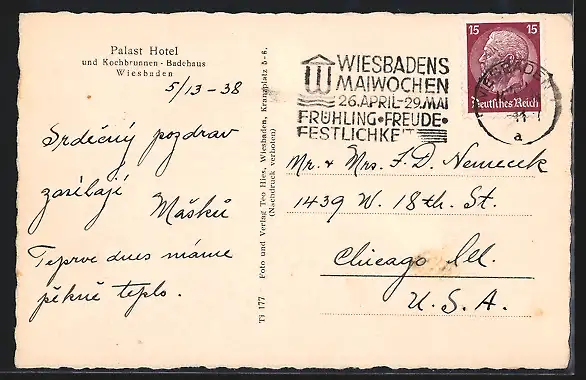 Palast Hotel
und Kochbrunnen - Badehaus
Wiesbaden
5/13-38
Srdečný pozdrav
zasílají
Mašků
Teprve dnes máme
pěkně teplo.
Ti 177 Foto und Verlag Teo Hies, Wiesbaden, Kranzplatz 5-6.
(Nachdruck verboten)
WIESBADENS
MAIWOCHEN
26. APRIL-29. MAI
FRÜHLING • FREUDE •
FESTLICHKEIT
15 15
Deutsches Reich
WIESBADEN
a
Mr. & Mrs. F. D. Nemecek
1439 W. 18th. St.
Chicago Ill.
U. S. A.